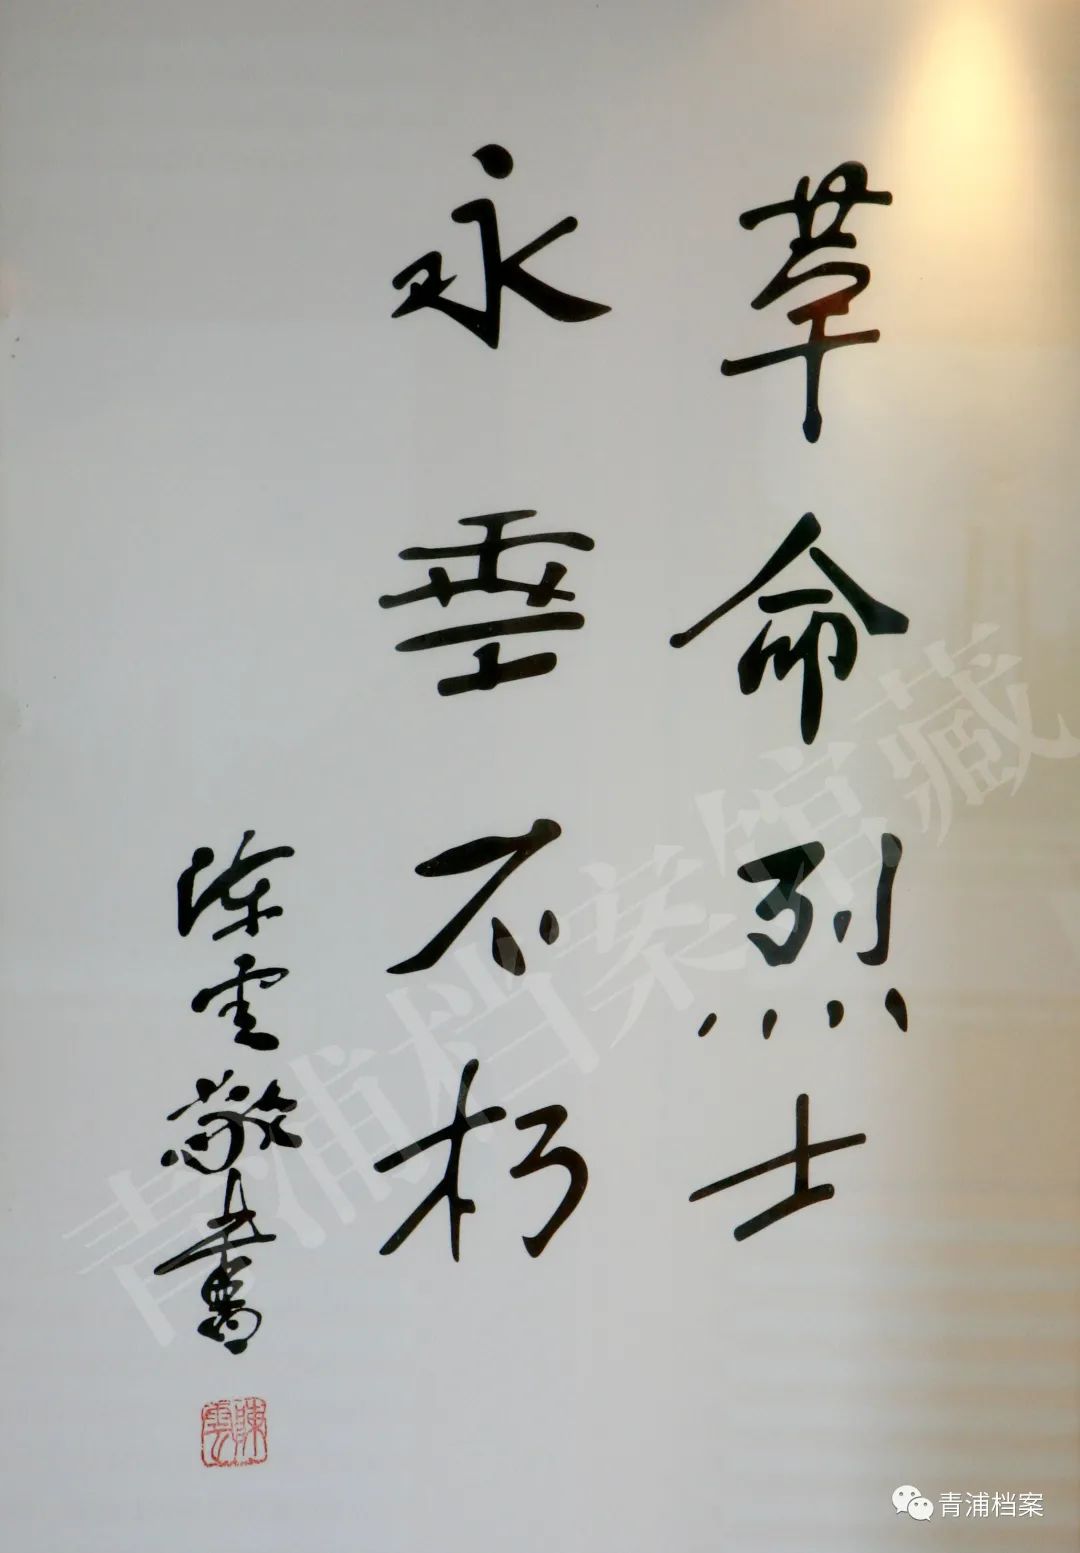 革命烈士
永垂不朽
陈云敬书
陳雲
青浦档案馆藏
青浦档案